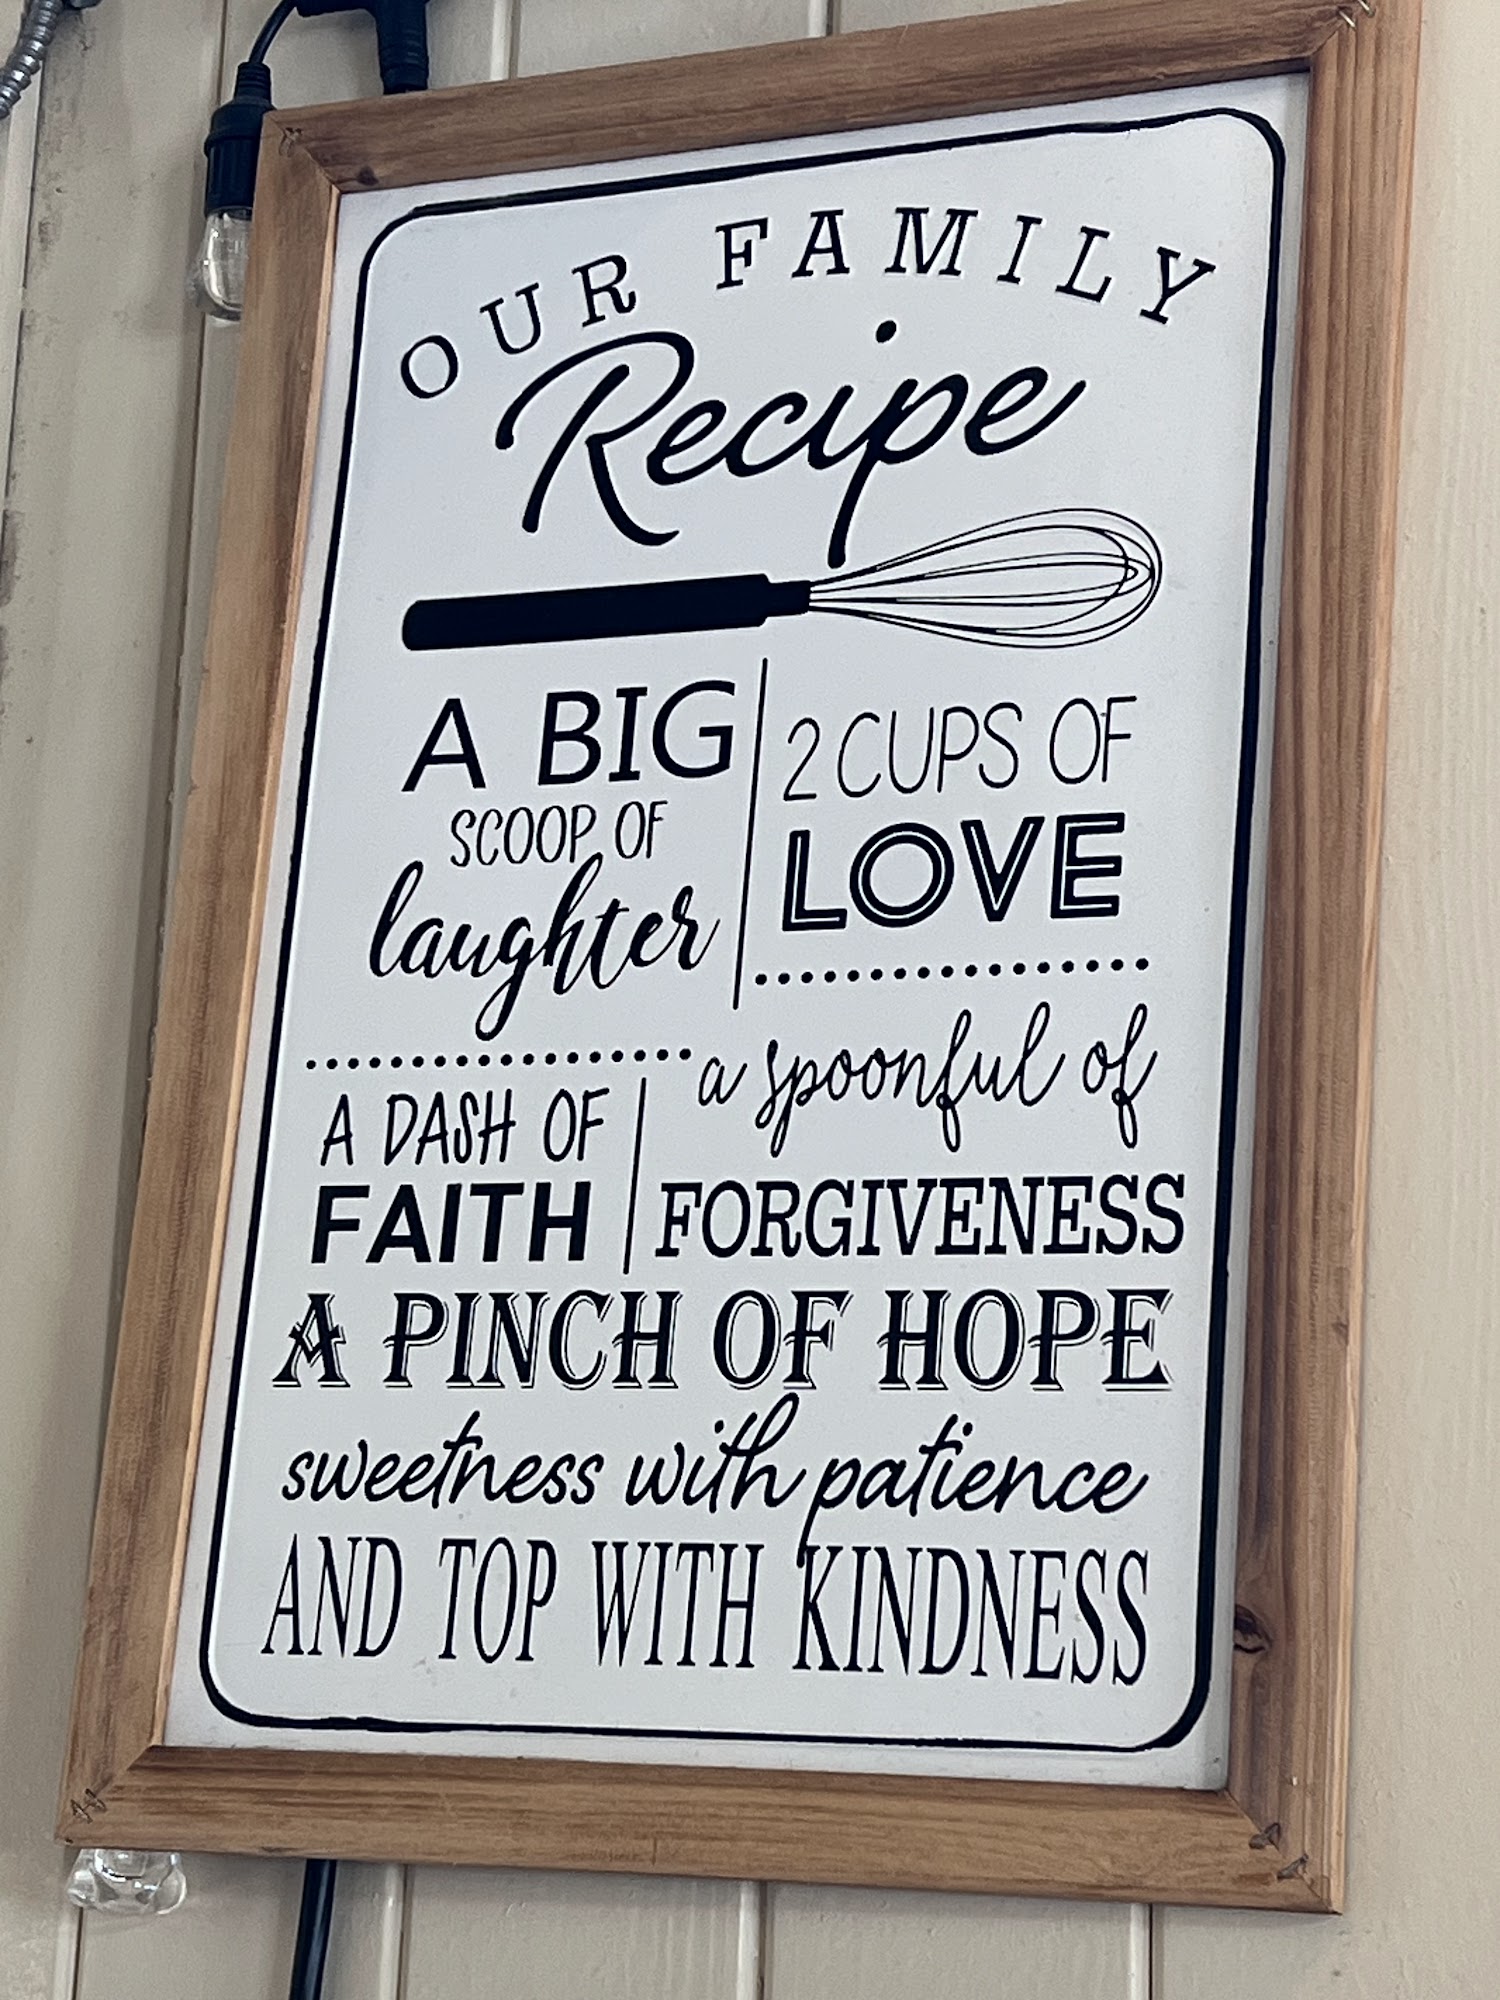 OUR FAMILY
Recipe
A BIG
SCOOP OF
laughter
2 CUPS OF
LOVE
A DASH OF
FAITH
a spoonful of
FORGIVENESS
A PINCH OF HOPE
sweetness with patience
AND TOP WITH KINDNESS